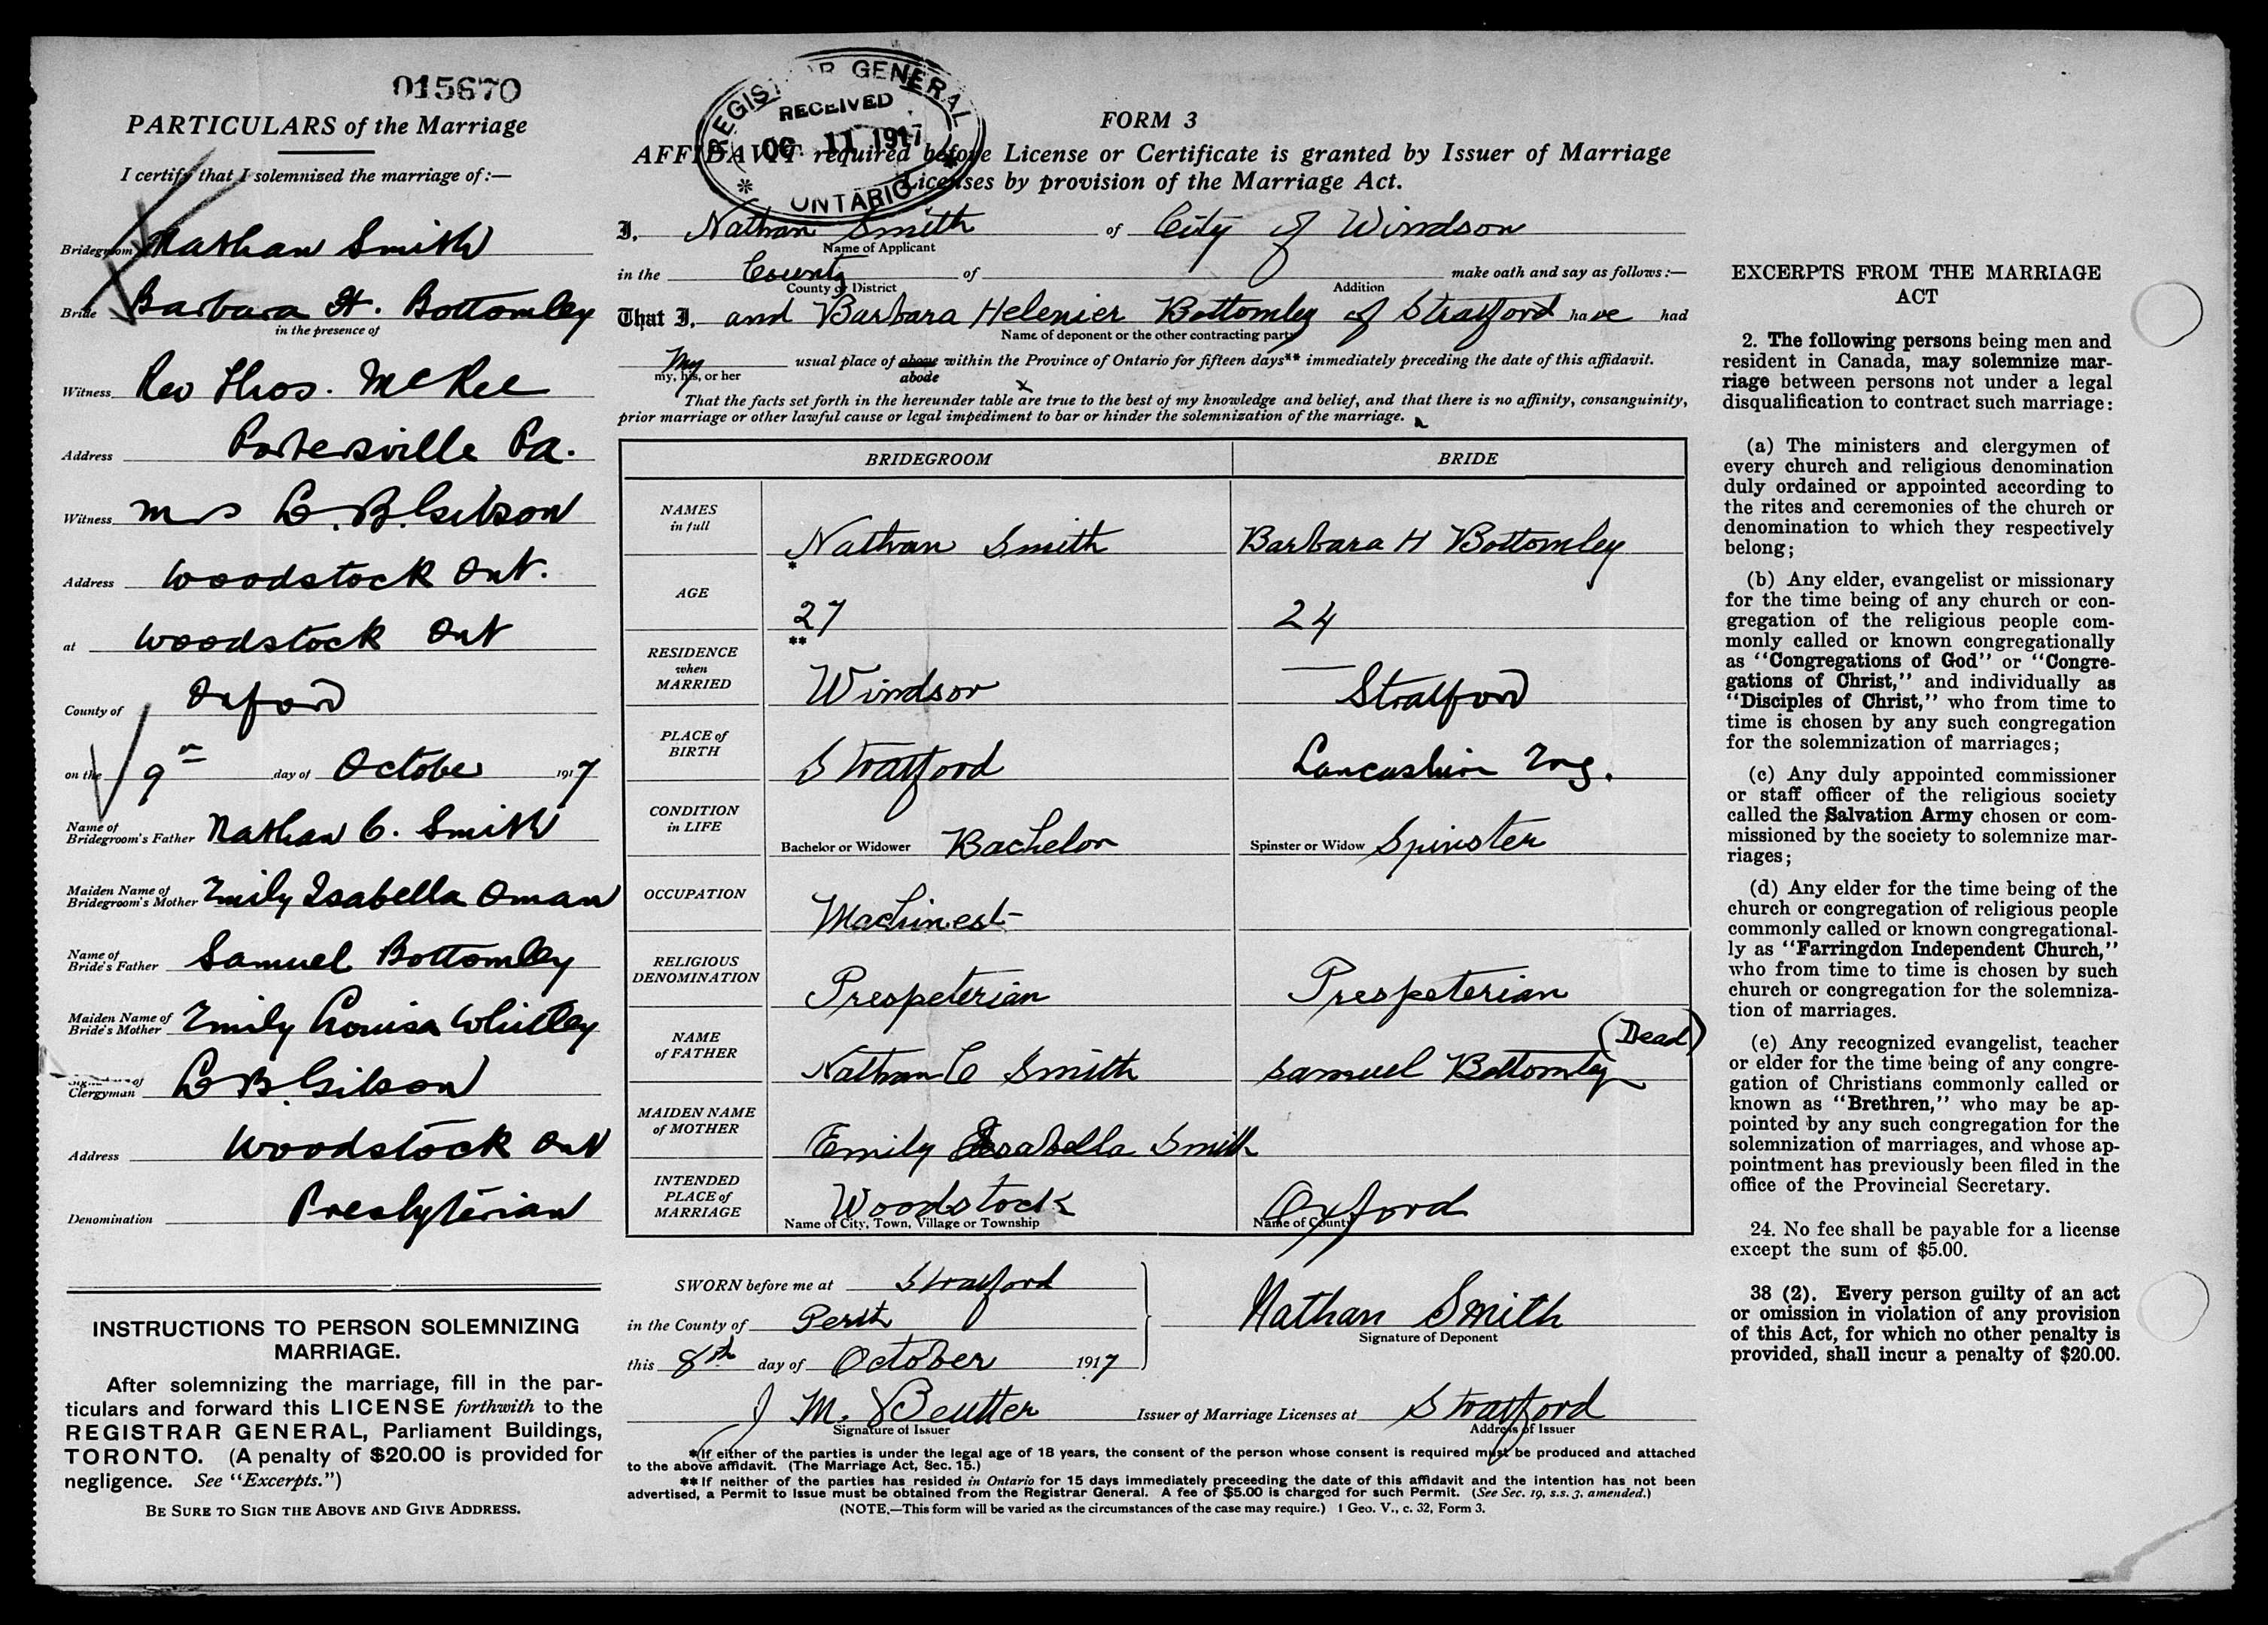 015670
PARTICULARS of the Marriage
I certify that I solemnized the marriage of:—
Bridegroom Nathan Smith
Bride Barbara H. Bottomley
in the presence of
Witness Rev Thos. McKee
Address Portersville Pa.
Witness Mrs L. B. Gibson
Address Woodstock Ont.
at Woodstock Ont
County of Oxford
on the 9th day of October 1917
Name of
Bridegroom's Father Nathan C. Smith
Maiden Name of
Bridegroom's Mother Emily Isabella Oman
Name of
Bride's Father Samuel Bottomley
Maiden Name of
Bride's Mother Emily Louisa Whitley
Signature of
Clergyman L B. Gibson
Address Woodstock Ont
Denomination Presbyterian
INSTRUCTIONS TO PERSON SOLEMNIZING
MARRIAGE.
After solemnizing the marriage, fill in the par-
ticulars and forward this LICENSE forthwith to the
REGISTRAR GENERAL, Parliament Buildings,
TORONTO. (A penalty of $20.00 is provided for
negligence. See "Excerpts.")
BE SURE TO SIGN THE ABOVE AND GIVE ADDRESS.
REGISTRAR GENERAL
RECEIVED
OC 11 1917
ONTARIO
FORM 3
AFFIDAVIT required before License or Certificate is granted by Issuer of Marriage
Licenses by provision of the Marriage Act.
I, Nathan Smith of City of Windsor
Name of Applicant
in the County of make oath and say as follows:—
County or District Addition
That I, and Barbara Helenier Bottomley of Stratford have had
Name of deponent or the other contracting party
My usual place of above within the Province of Ontario for fifteen days** immediately preceding the date of this affidavit.
my, his, or her abode
x
That the facts set forth in the hereunder table are true to the best of my knowledge and belief, and that there is no affinity, consanguinity,
prior marriage or other lawful cause or legal impediment to bar or hinder the solemnization of the marriage.
BRIDEGROOM BRIDE
NAMES
in full Nathan Smith Barbara H Bottomley
*
AGE 27 24
**
RESIDENCE
when
MARRIED Windsor Stratford
PLACE of
BIRTH Stratford Lancashire Eng.
CONDITION
in LIFE Bachelor or Widower Bachelor Spinster or Widow Spinster
OCCUPATION Machinest
RELIGIOUS
DENOMINATION Prespeterian Prespeterian
(Dead)
NAME
of FATHER Nathan C Smith Samuel Bottomley
MAIDEN NAME
of MOTHER Emily Isabella Smith
INTENDED
PLACE of
MARRIAGE Woodstock Oxford
Name of City, Town, Village or Township Name of County
SWORN before me at Stratford
in the County of Perth
this 8th day of October 1917
Nathan Smith
Signature of Deponent
J M. Beutter Issuer of Marriage Licenses at Stratford
Signature of Issuer Address of Issuer
*If either of the parties is under the legal age of 18 years, the consent of the person whose consent is required must be produced and attached
to the above affidavit. (The Marriage Act, Sec. 15.)
**If neither of the parties has resided in Ontario for 15 days immediately preceeding the date of this affidavit and the intention has not been
advertised, a Permit to Issue must be obtained from the Registrar General. A fee of $5.00 is charged for such Permit. (See Sec. 19, s.s. 3, amended.)
(NOTE.—This form will be varied as the circumstances of the case may require.) 1 Geo. V., c. 32, Form 3.
EXCERPTS FROM THE MARRIAGE
ACT
2. The following persons being men and
resident in Canada, may solemnize mar-
riage between persons not under a legal
disqualification to contract such marriage:
(a) The ministers and clergymen of
every church and religious denomination
duly ordained or appointed according to
the rites and ceremonies of the church or
denomination to which they respectively
belong;
(b) Any elder, evangelist or missionary
for the time being of any church or con-
gregation of the religious people com-
monly called or known congregationally
as "Congregations of God" or "Congre-
gations of Christ," and individually as
"Disciples of Christ," who from time to
time is chosen by any such congregation
for the solemnization of marriages;
(c) Any duly appointed commissioner
or staff officer of the religious society
called the Salvation Army chosen or com-
missioned by the society to solemnize mar-
riages;
(d) Any elder for the time being of the
church or congregation of religious people
commonly called or known congregational-
ly as "Farringdon Independent Church,"
who from time to time is chosen by such
church or congregation for the solemniza-
tion of marriages.
(e) Any recognized evangelist, teacher
or elder for the time being of any congre-
gation of Christians commonly called or
known as "Brethren," who may be ap-
pointed by any such congregation for the
solemnization of marriages, and whose ap-
pointment has previously been filed in the
office of the Provincial Secretary.
24. No fee shall be payable for a license
except the sum of $5.00.
38 (2). Every person guilty of an act
or omission in violation of any provision
of this Act, for which no other penalty is
provided, shall incur a penalty of $20.00.